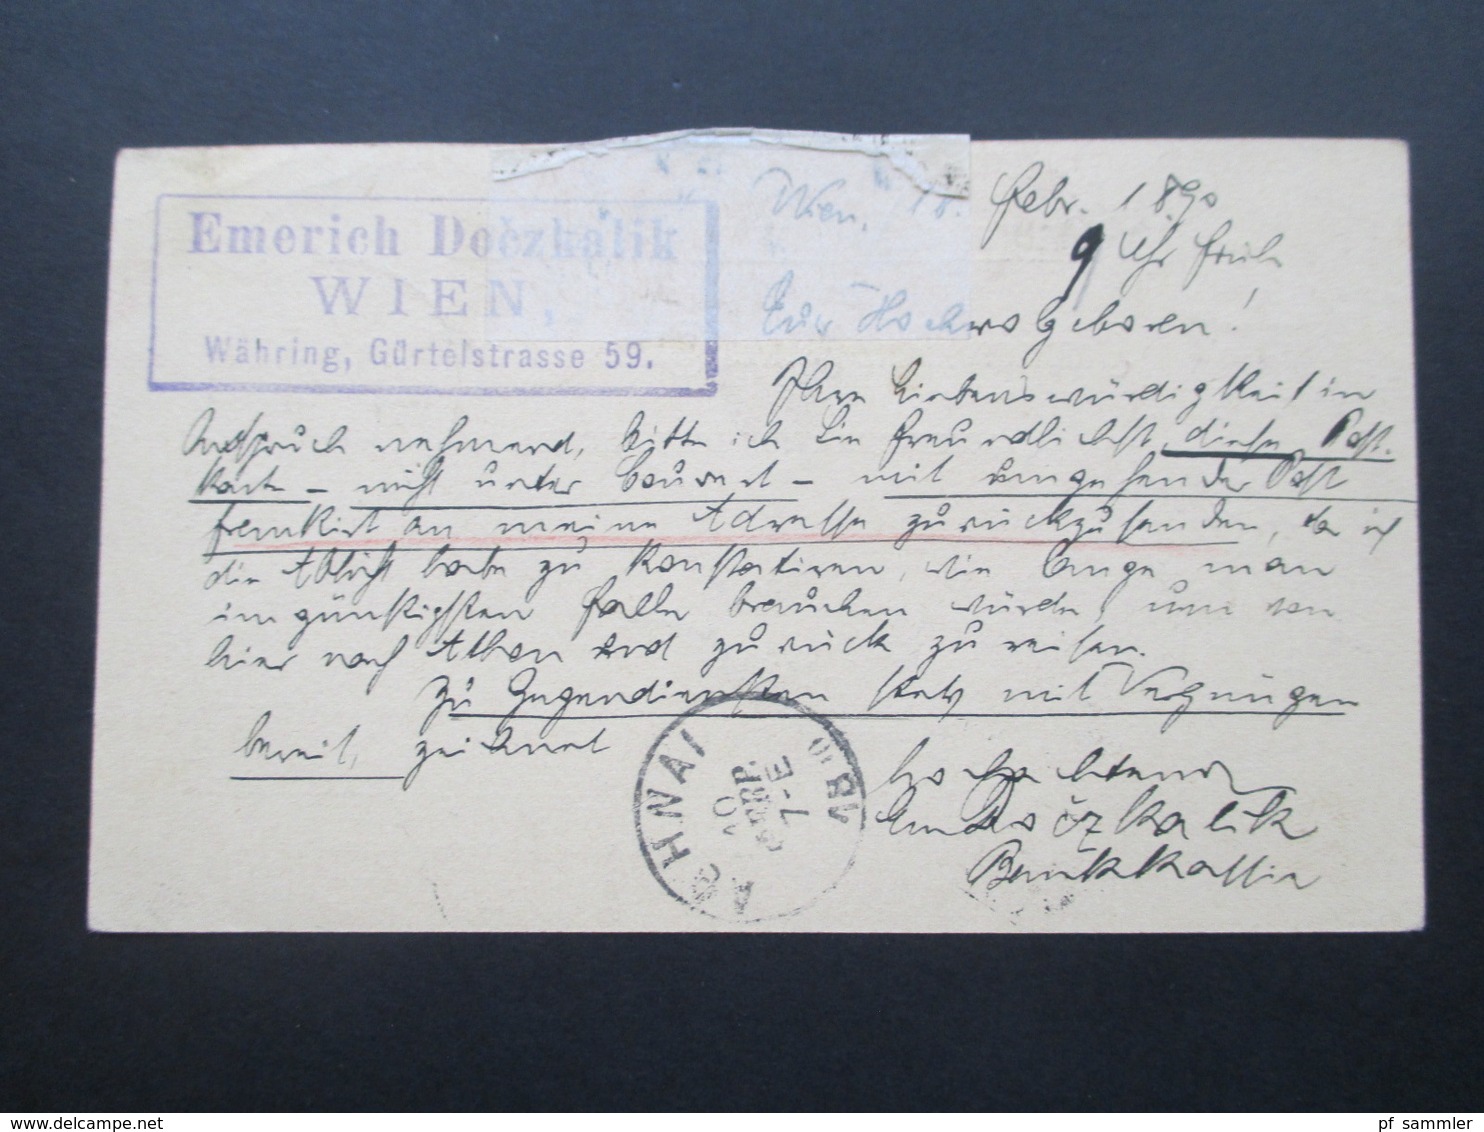 Emerich Doczkalik
WIEN,
Währing, Gürtelstrasse 59.
Wien, 18. Febr. 1890
9 Uhr früh
Euer Hochwolgeboren!
Ihre Liebenswürdigkeit in
Anspruch nehmend, bitte ich Sie freundlichst, diese Post-
karte – nicht unter Couvert – mit umgehender Post
frankirt an meine Adresse zurückzusenden, da ich
die Absicht habe zu konstatiren, wie lange man
im günstigsten Falle brauchen würde, um von
hier nach Athen und zurück zu reisen.
Zu Gegendiensten stets mit Vergnügen
bereit, zeichnet
Hochachtend
Em Doczkalik
Bankkassier
10
7-E
pf_sammler